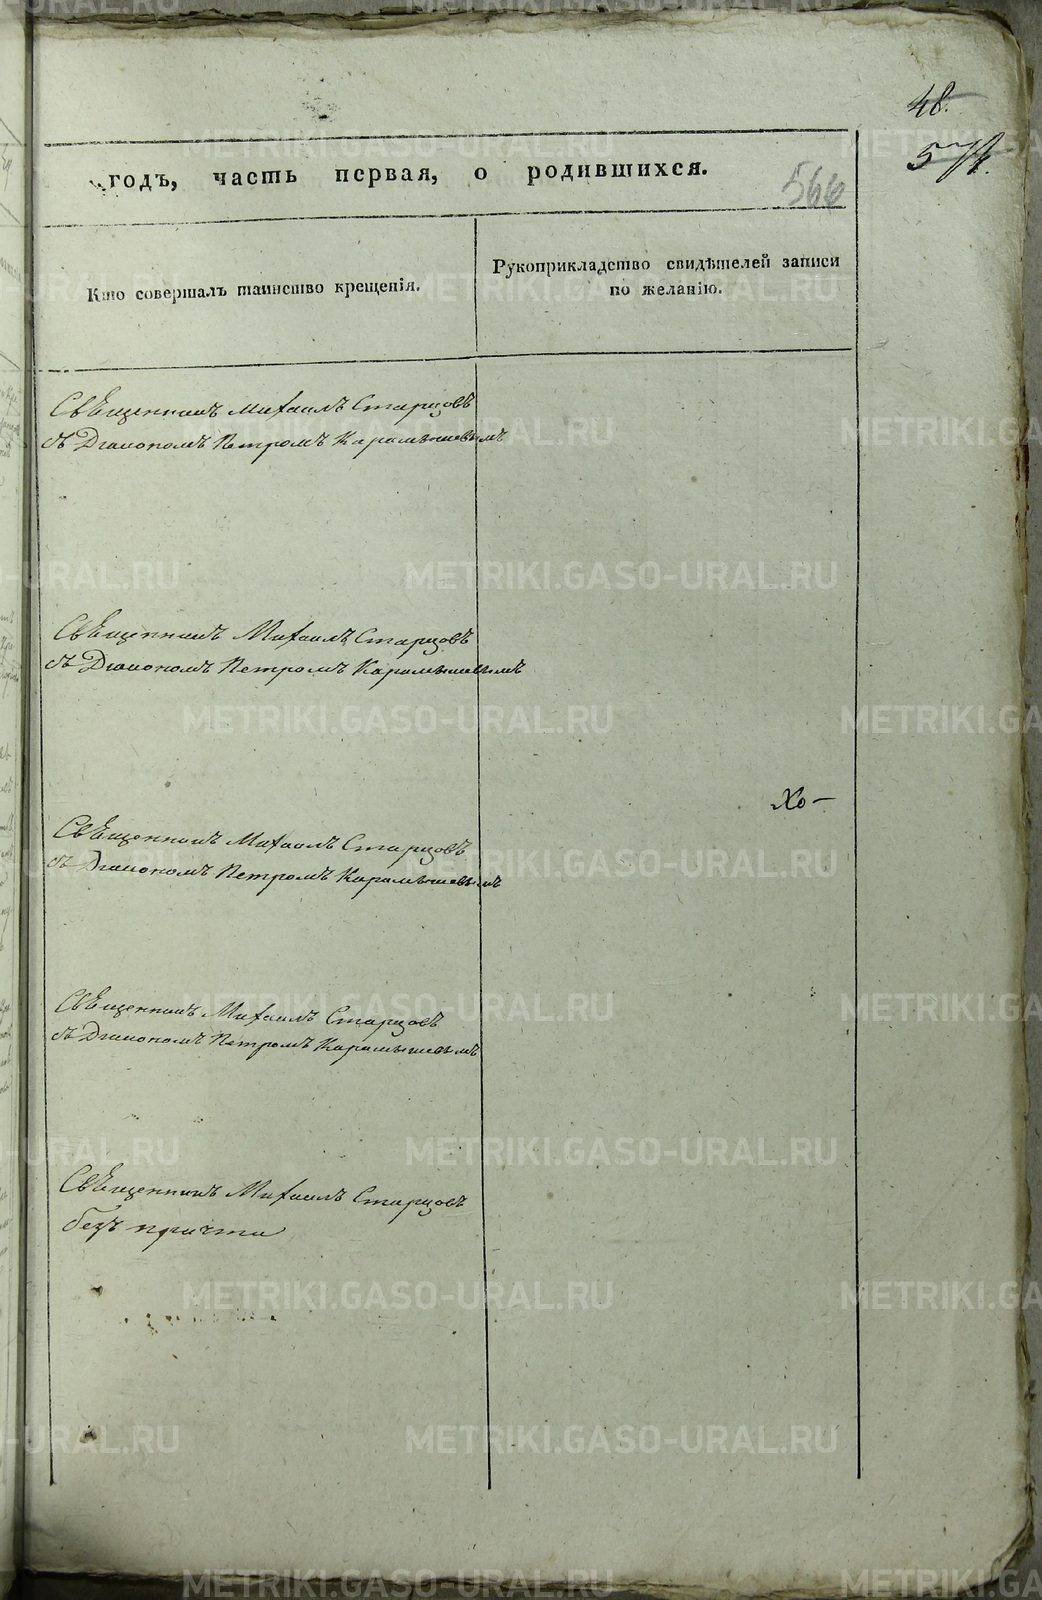 48.
574.
годъ, часть первая, о родившихся.
566
Кто совершалъ таинство крещенія.
Рукоприкладство свидѣтелей записи
по желанію.
Священникъ Михаилъ Старцовъ
съ Діакономъ Петромъ Карамышевымъ
Священникъ Михаилъ Старцовъ
съ Діакономъ Петромъ Карамышевымъ
Хо-
Священникъ Михаилъ Старцовъ
съ Діакономъ Петромъ Карамышевымъ
Священникъ Михаилъ Старцовъ
съ Діакономъ Петромъ Карамышевымъ
Священникъ Михаилъ Старцовъ
безъ причта
METRIKI.GASO-URAL.RU